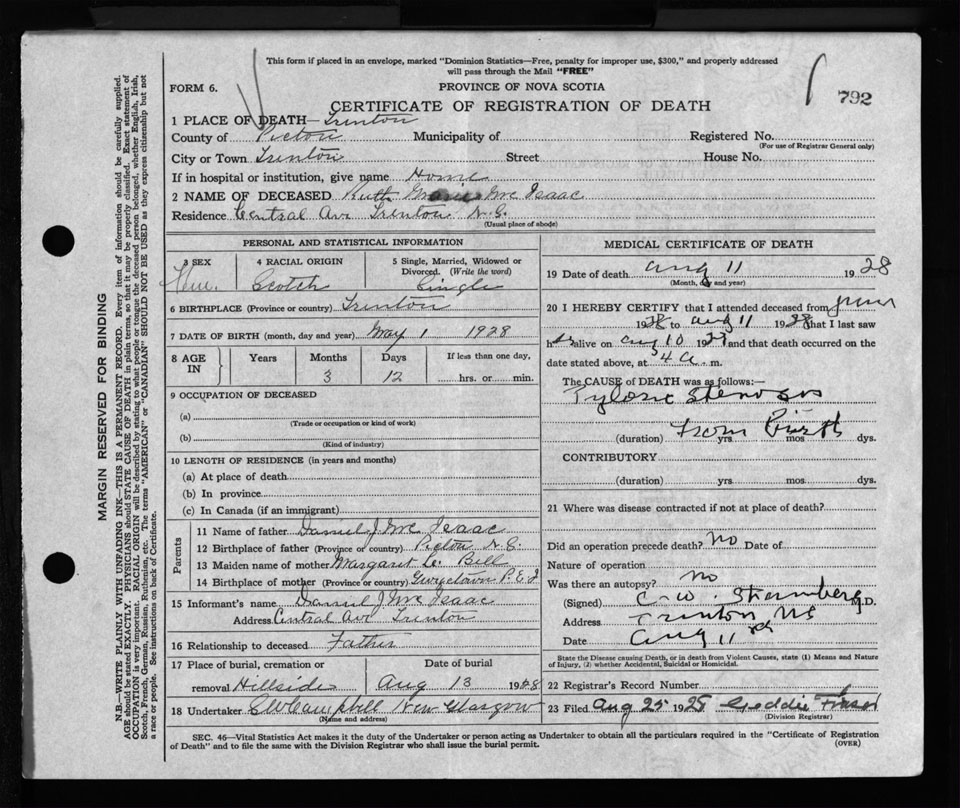 This form if placed in an envelope, marked "Dominion Statistics—Free, penalty for improper use, $300," and properly addressed
will pass through the Mail "FREE"
FORM 6.
PROVINCE OF NOVA SCOTIA
792
CERTIFICATE OF REGISTRATION OF DEATH
1 PLACE OF DEATH—Trenton
County of Pictou Municipality of Registered No.
(For use of Registrar General only)
City or Town Trenton Street House No.
If in hospital or institution, give name Home
2 NAME OF DECEASED Ruth Marie Mc Isaac
Residence Central Ave Trenton N.S.
(Usual place of abode)
PERSONAL AND STATISTICAL INFORMATION
3 SEX 4 RACIAL ORIGIN 5 Single, Married, Widowed or
Divorced. (Write the word)
Fem. Scotch Single
6 BIRTHPLACE (Province or country) Trenton
7 DATE OF BIRTH (month, day and year) May 1 1928
8 AGE IN Years Months Days If less than one day,
3 12 hrs. or min.
9 OCCUPATION OF DECEASED
(a)
(Trade or occupation or kind of work)
(b)
(Kind of industry)
10 LENGTH OF RESIDENCE (in years and months)
(a) At place of death
(b) In province
(c) In Canada (if an immigrant)
Parents
11 Name of father Daniel J Mc Isaac
12 Birthplace of father (Province or country) Pictou N.S.
13 Maiden name of mother Margaret Bell
14 Birthplace of mother (Province or country) Georgetown P.E.I
15 Informant's name Daniel J Mc Isaac
Address Central Ave Trenton
16 Relationship to deceased Father
17 Place of burial, cremation or Date of burial
removal Hillside Aug 13 1928
18 Undertaker Campbell New Glasgow
(Name and address)
MEDICAL CERTIFICATE OF DEATH
19 Date of death Aug 11 1928
(Month, day and year)
20 I HEREBY CERTIFY that I attended deceased from
1928 to Aug 11 1928 that I last saw
h er alive on Aug 10 and that death occurred on the
date stated above, at 4 a. m.
The CAUSE OF DEATH was as follows:—
Pyloric Stenosis
From Birth
(duration) yrs mos dys.
CONTRIBUTORY
(duration) yrs mos dys.
21 Where was disease contracted if not at place of death?
Did an operation precede death? No Date of
Nature of operation
Was there an autopsy? no
(Signed) M.D.
Address Trenton NS
Date Aug 11
State the Disease causing Death, or in death from Violent Causes, state (1) Means and Nature
of Injury, (2) whether Accidental, Suicidal or Homicidal.
22 Registrar's Record Number
23 Filed Aug 25 1928 Geddie Fraser
(Division Registrar)
SEC. 46—Vital Statistics Act makes it the duty of the Undertaker or person acting as Undertaker to obtain all the particulars required in the "Certificate of Registration
of Death" and to file the same with the Division Registrar who shall issue the burial permit.
(OVER)
MARGIN RESERVED FOR BINDING
N.B.—WRITE PLAINLY WITH UNFADING INK—THIS IS A PERMANENT RECORD. Every item of information should be carefully supplied.
AGE should be stated EXACTLY. PHYSICIANS should STATE CAUSE OF DEATH in plain terms, so that it may be properly classified. Exact statement of
OCCUPATION is very important. RACIAL ORIGIN will be described by stating to what people or tongue the deceased person belonged, whether English, Irish,
Scotch, French, German, Russian, Ruthenian, etc. The terms "AMERICAN" or "CANADIAN" SHOULD NOT BE USED as they express citizenship but not
a race or people. See instructions on back of Certificate.